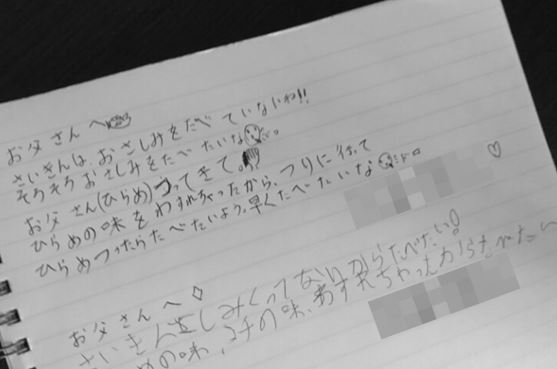 お父さんへ
さいきんは、おさしみをたべていないわ!!
そろそろおさしみをたべたいな
お父さん(ひらめ)つってきて。
ひらめの味をわすれちゃったから、つりに行って
ひらめつったらたべたいよう。早くたべたいな
お父さんへ
さいきんさしみくってないからたべたい!
めの味、の味、わすれちゃったからたべたい